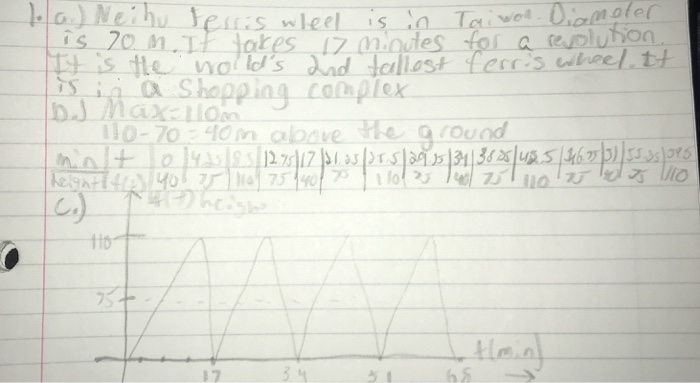 1. a.) Neihu ferris wheel is in Taiwan. Diameter
is 70 m. It takes 17 minutes for a revolution.
It is the world's 2nd tallest ferris wheel. It
is in a shopping complex
b.) Max=110m
110-70=40m above the ground
min t 0 4.25 8.5 12.75 17 21.25 25.5 29.75 34 38.25 42.5 46.75 51 55.25 59.5
height f(t) 40 75 110 75 40 75 110 75 40 75 110 75 40 75 110
c.) f(t) height
110
75
t(min)
17 34 51 68